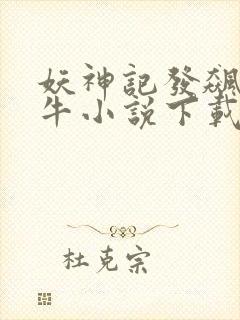 妖神記發飆
牛小說下載
杜克宗